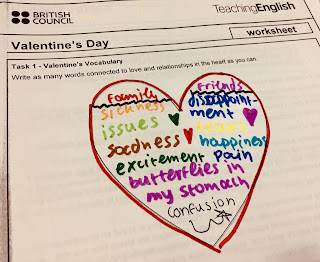 BRITISH COUNCIL
TeachingEnglish
Valentine's Day
worksheet
Task 1 - Valentine's Vocabulary
Write as many words connected to love and relationships in the heart as you can.
family
friends
sickness
disappoint-
ment
issues
tears
sadness
happiness
excitement
pain
butterflies in
my stomach
confusion